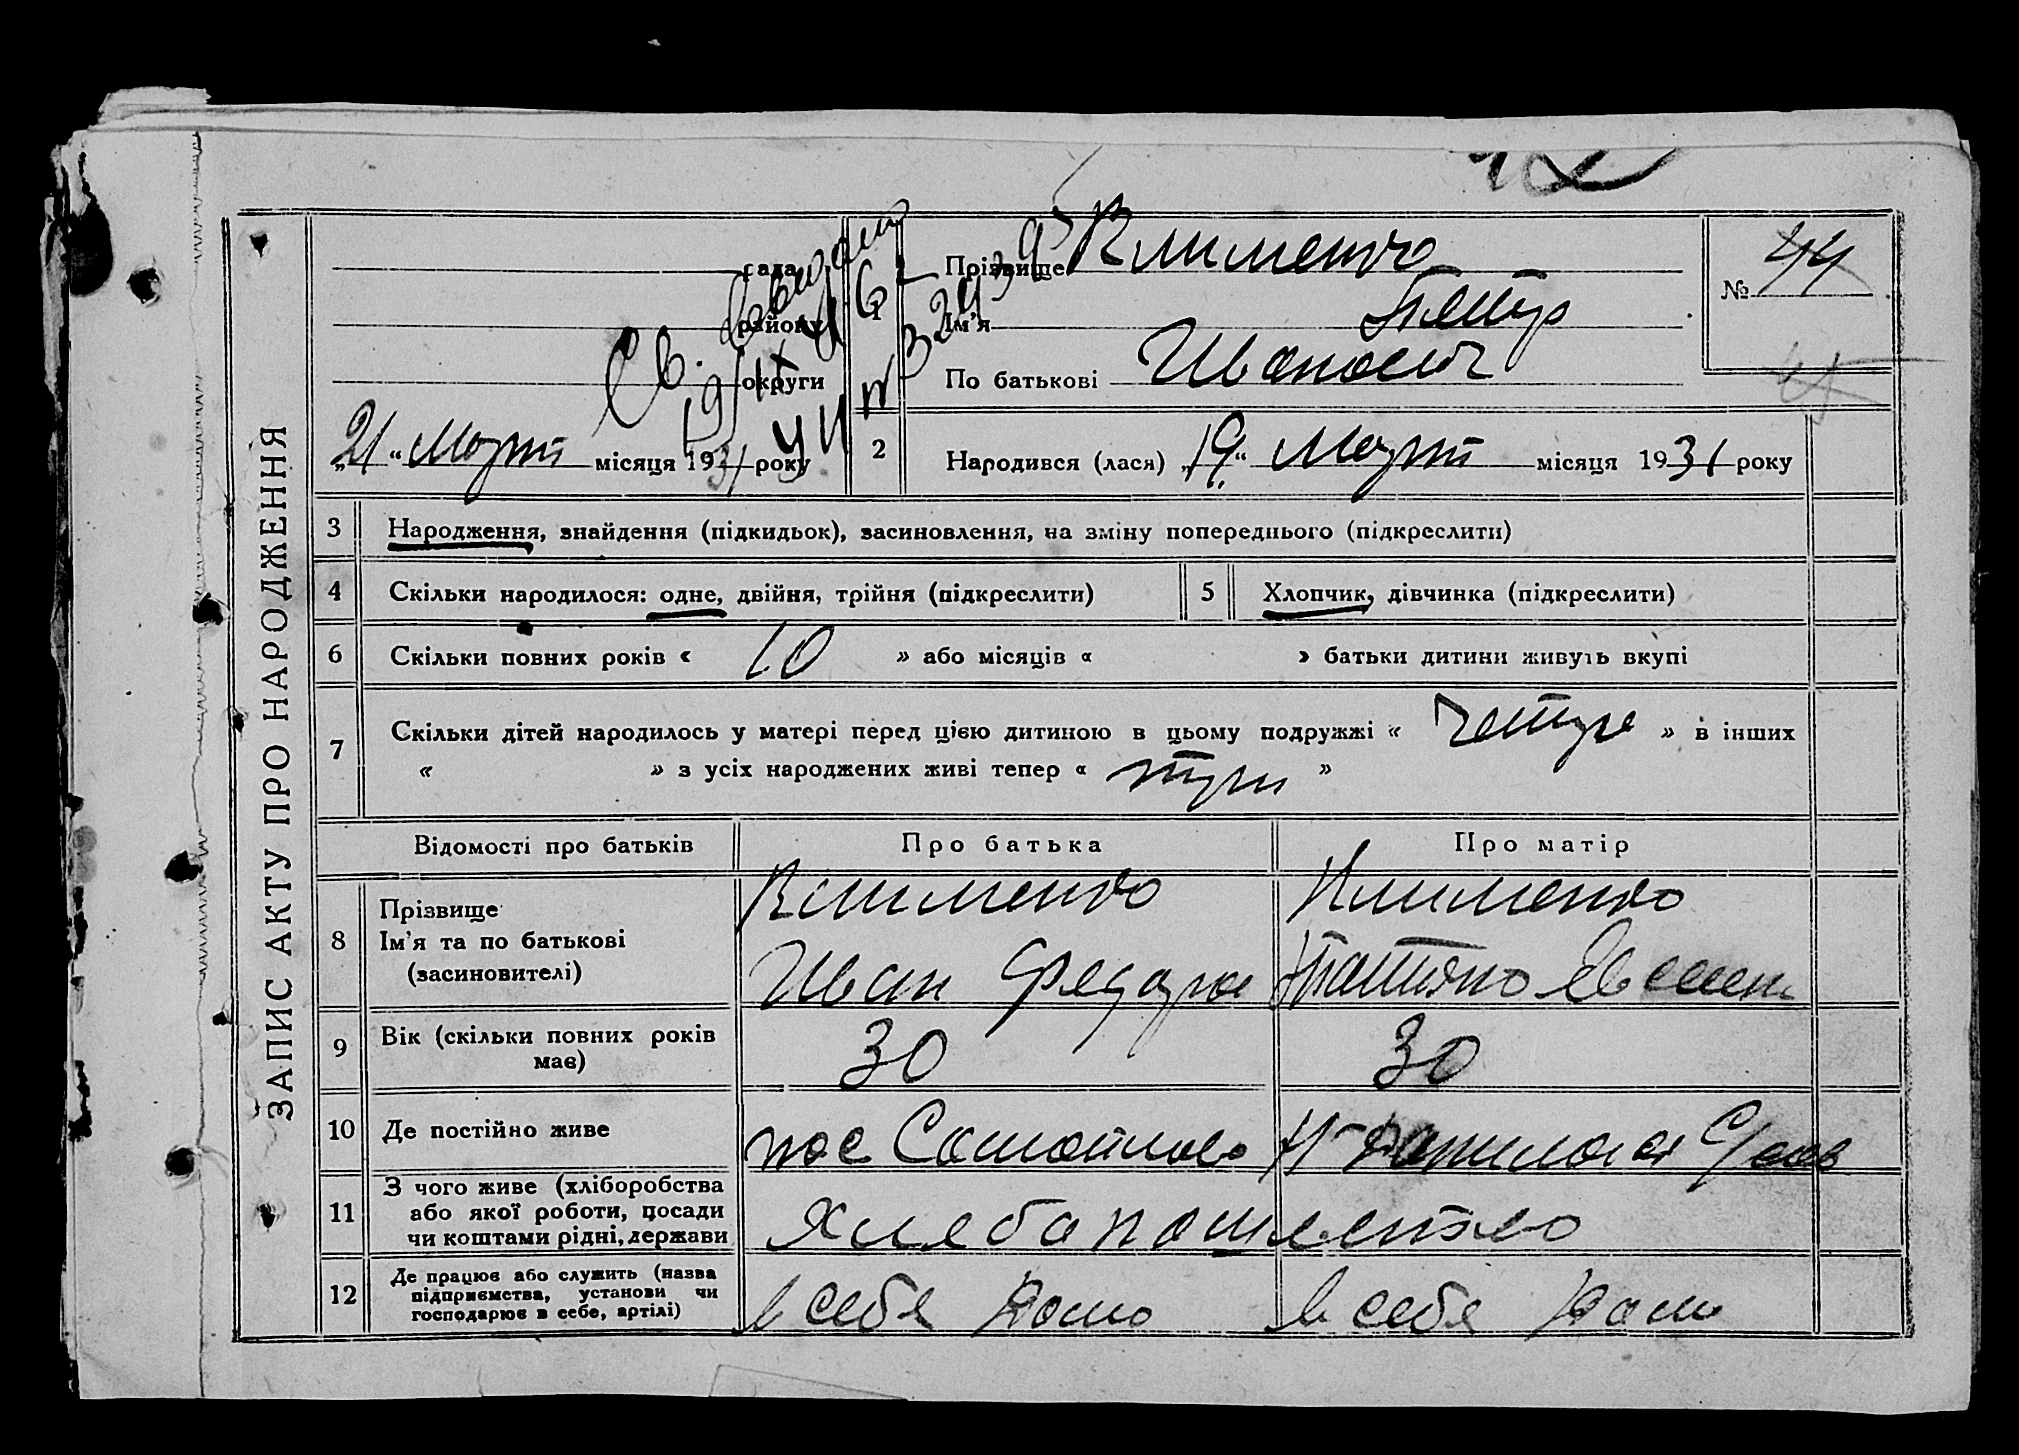 ЗАПИС АКТУ ПРО НАРОДЖЕННЯ
сада
району
округи
„21“ Март місяця 1931 року
1
Прізвище Клименко
Ім'я Петър
По батькові Иванович
№ 44
2
Народився (лася) „19“ Март місяця 1931 року
3 Народження, знайдення (підкидьок), засиновлення, на зміну попереднього (підкреслити)
4 Скільки народилося: одне, двійня, трійня (підкреслити)
5 Хлопчик, дівчинка (підкреслити)
6 Скільки повних років « 10 » або місяців « » батьки дитини живуть вкупі
7 Скільки дітей народилось у матері перед цією дитиною в цьому подружжі « четире » в інших
« » з усіх народжених живі тепер « три »
Відомості про батьків
Про батька
Про матір
8
Прізвище
Ім'я та по батькові
(засиновителі)
Клименко
Иван Федоров
Клименко
Татьяна
9
Вік (скільки повних років
має)
30
30
10 Де постійно живе
пос
11
З чого живе (хліборобства
або якої роботи, посади
чи коштами рідні, держави
12
Де працює або служить (назва
підприємства, установи чи
господарює в себе, артілі)
в себя дома
в себя дома